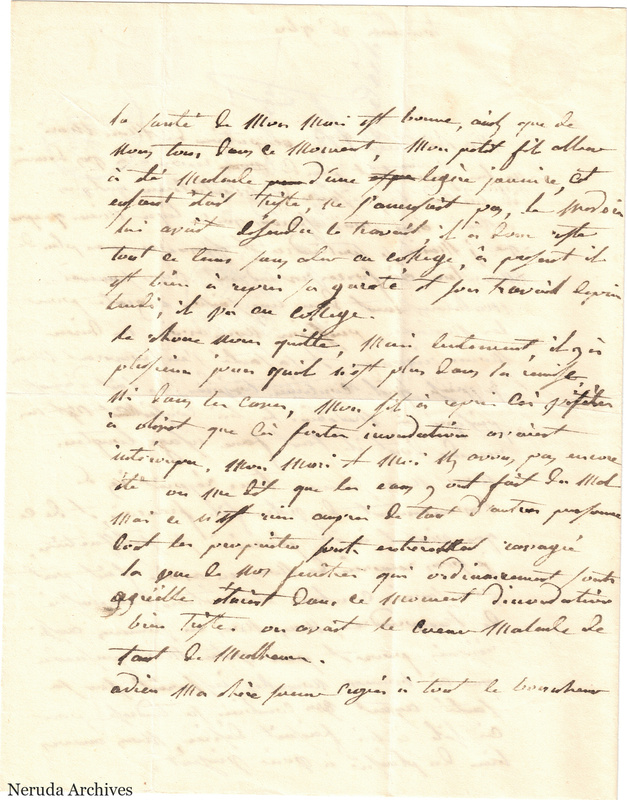 la santé de mon mari est bonne, ainsi que de
nous tous dans ce moment, mon petit fils
à été malade d'une legère jaunisse, cet
enfant était triste, ne s'amusait pas, le medecin
lui avait défendu le travail, il à donc resté
tout ce tems sans aler au college, à present il
est bien à repris sa gaieté et son travail depuis
lundi, il va au college.
le rhone nous quitte, mais lentement il y à
plusieurs jours quil n'est plus dans la remise,
ni dans les caves, mon fil à repris
à diset que les fortes inondations avaient
interompu, mon mari et moi n'y avons pas encore
été on me dit que les eaux y ont fait du mal
mais ce n'est rien aupres de tant d'autres personne
dont les proprietés sont entièrement ravagé
la vue de nos fenêtres qui ordinairement sont
agréable étaient dans ce moment d'inondation
bien triste. on avait le coeur malade de
tant de malheur.
adieu ma chère croyés à tout le
Neruda Archives